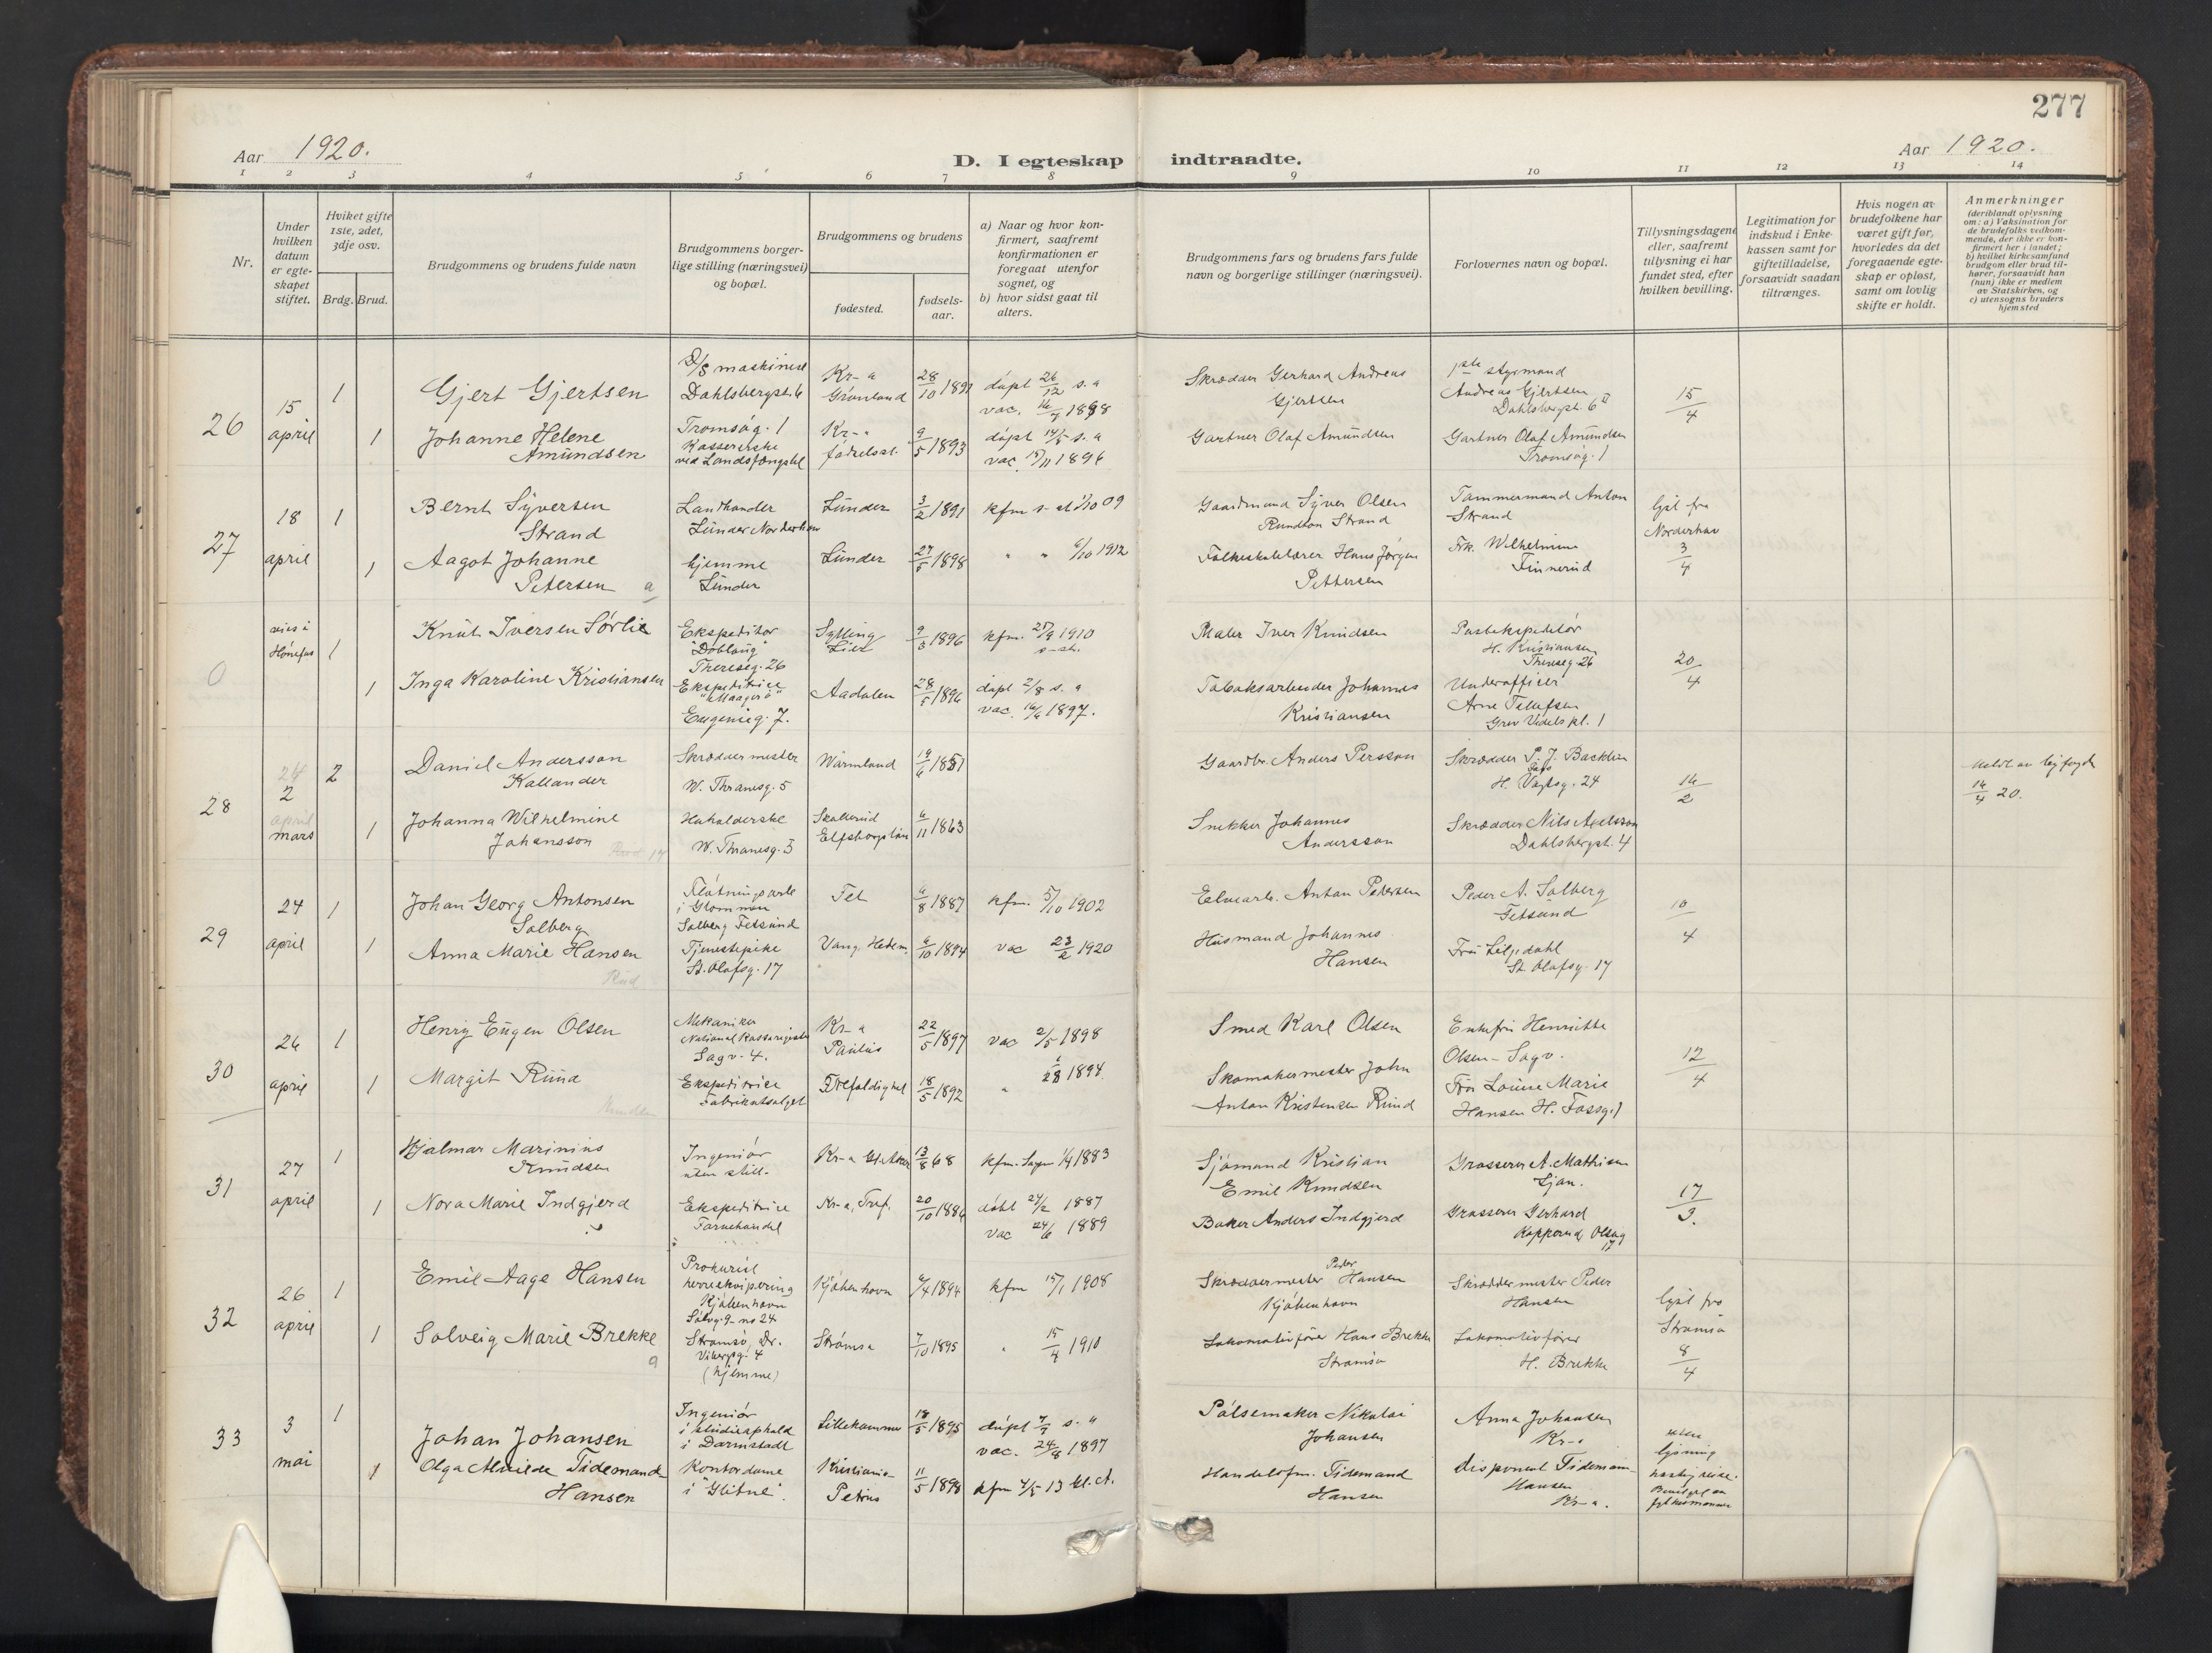 277
Aar 1920.
D. I egteskap indtraadte.
Aar 1920.
1 2 3 4 5 6 7 8 9 10 11 12 13 14
Nr.
Under hvilken datum er egte-skapet stiftet.
Hviket gifte 1ste, 2det, 3dje osv.
Brdg. Brud.
Brudgommens og brudens fulde navn
Brudgommens borger-
lige stilling (næringsvei)
og bopæl.
Brudgommens og brudens
fødested.
fødsels-
aar.
a) Naar og hvor kon-
firmert, saafremt
konfirmationen er
foregaat utenfor
sognet, og
b) hvor sidst gaat til
alters.
Brudgommens fars og brudens fars fulde
navn og borgerlige stillinger (næringsvei).
Forlovernes navn og bopæl.
Tillysningsdagene
eller, saafremt
tillysning ei har
fundet sted, efter
hvilken bevilling.
Legitimation for
indskud i Enke-
kassen samt for
giftetilladelse,
forsaavidt saadan
tiltrænges.
Hvis nogen av
brudefolkene har
været gift før,
hvorledes da det
foregaaende egte-
skap er opløst,
samt om lovlig
skifte er holdt.
Anmerkninger
(deriblandt oplysning
om: a) Vaksination for
de brudefolks vedkom-
mende, der ikke er kon-
firmert her i landet;
b) hvilket kirkesamfund
brudgom eller brud til-
hører, forsaavidt han
(hun) ikke er medlem
av Statskirken, og
c) utensogns bruders
hjemsted
26
15
april
1
Gjert Gjertsen
D/S maskinist
Dahlsbergst. 6
Kr-a
Grønland
28/10 1891
døpt 26/12 s. a
vac.
Skrædder Gerhard Andreas
Gjertsen
1ste styrmand
Andreas Gjertsen
Dahlsbergst. 6 II
15/4
1
Johanne Helene
Amundsen
Tromsøg. 1
Kassererske
ved Landsfængslet
Kr-a
fødselsst.
9/5 1893
døpt 14/5 s. a
vac. 1896
Gartner Olaf Amundsen
Gartner Olaf Amundsen
Tromsøg. 1
27
18
april
1
Bernt Syversen
Strand
Landhandler
Lunder Norderhov
Lunder
3/2 1891
kfm s-st 1/10 09
Gaardmand Syver Olsen
Strand
Tømmermand Anton
Strand
lyst fra
Norderhov
3/4
1
Aagot Johanne
Petersen
hjemme
Lunder
Lunder
27/5 1898
" " 6/10 1912
Folkeskolelærer Hans Jørgen
Pettersen
Frk. Wilhelmine
Finnerud
0
vies i
Hønefos
1
Knut Iversen Sørlie
Ekspeditør
"Døblaug"
Thereseg. 26
Sylling
Lier
9/3 1896
kfm. 25/9 1910
s-st.
Maler Iver Knudsen
Postekspeditør
H. Kristiansen
Thereseg. 26
20/4
1
Inga Karoline Kristiansen
Ekspeditrice
Eugenieg. 7.
Aadalen
28/5 1896
døpt 2/8 s. a
vac. 16/6 1897.
Tobaksarbeider Johannes
Kristiansen
Underofficer
Arne Tellefsen
Grev Wedels pl. 1
28
2
mars
2
Daniel Andersson
Kallander
Skræddermester
W. Thranesg. 5
Wärmland
19/6 1851
Gaardbr. Anders Persson
Skrædder P. J. Backlin
24
16/2
14/4 20.
1
Johanna Wilhelmine
Johansson
Husholderske
W. Thranesg. 3
Skallerud
Elfsborgs län
6/11 1863
Snekker Johannes
Andersson
Skrædder Nils Axelsson
Dahlsbergst. 4
29
24
april
1
Johan Georg Antonsen
Solberg
Fløtningsarb.
i Glommen
Solberg Fetsund
Fet
6/8 1887
kfm. 5/10 1902
Elvearb. Anton Petersen
Peder A. Solberg
Fetsund
10/4
1
Anna Marie Hansen
Tjenestepike
St. Olafsg. 17
Vang. Hedem.
6/10 1894
vac 23/2 1920
Husmand Johannes
Hansen
Fru Liljedahl
St. Olafsg. 17
30
26
april
1
Henry Eugen Olsen
Mekaniker
National Kasseregister
Sagv. 4.
Kr-a
Paulus
22/5 1897
vac 2/5 1898
Smed Karl Olsen
Enkefru Henriette
Olsen - Sagv.
12/4
1
Margit Ruud
Ekspeditrice
Fabrikutsalget
Trefoldighet
18/5 1892
" 1894
Skomakermester John
Anton Kristensen Ruud
Fru Louise Marie
Hansen H. Fossg. 1
31
27
april
1
Hjalmar Marinius
Knudsen
Ingeniør
uten still.
Kr-a Gl. Aker
13/8 68
kfm. 1883
Sjømand Kristian
Emil Knudsen
Grosserer A. Mathisen
Ljan.
17/3.
1
Nora Marie Indgjerd
Ekspeditrice
Farvehandel
Kr-a, Tref.
20/10 1886
døbt 24/2 1887
vac 24/6 1889
Baker Anders Indgjerd
Grosserer Gerhard
Kopperud, Olsvg
17
32
26
april
1
Emil Aage Hansen
Prokurist
herreekvipering
Kjøbenhavn
Sølvg. 9- no 24
Kjøbenhavn
6/4 1894
kfm 15/1 1908
Skræddermester Peder Hansen
Kjøbenhavn
Skræddermester Peder
Hansen
lyst fra
Strømsø
8/4
1
Solveig Marie Brekke
Strømsø, Dr.
Vikergg. 4
(hjemme)
Strømsø
7/10 1895
" 15/4 1910
Lokomotivfører Hans Brekke
Strømsø
Lokomotivfører
H. Brekke
33
3
mai
1
Johan Johansen
Ingeniør
i studieophold
i Darmstadt
Lillehammer
18/5 1895
døpt 7/7 s. a
vac. 24/8 1897
Pølsemaker Nikolai
Johansen
Anna Johansen
Kr-a
uten
lysning
hastig reise.
Bevilget av
fylkesmannen
1
Olga Alvilde Tidemand-
Hansen
Kontordame
i "Glitne".
Kristiania-
Petrus
11/5 1898
kfm 4/5 13 Gl. A.
Handelsfm. Tidemand
Hansen
disponent Tidemann-
Hansen
Kr-a.